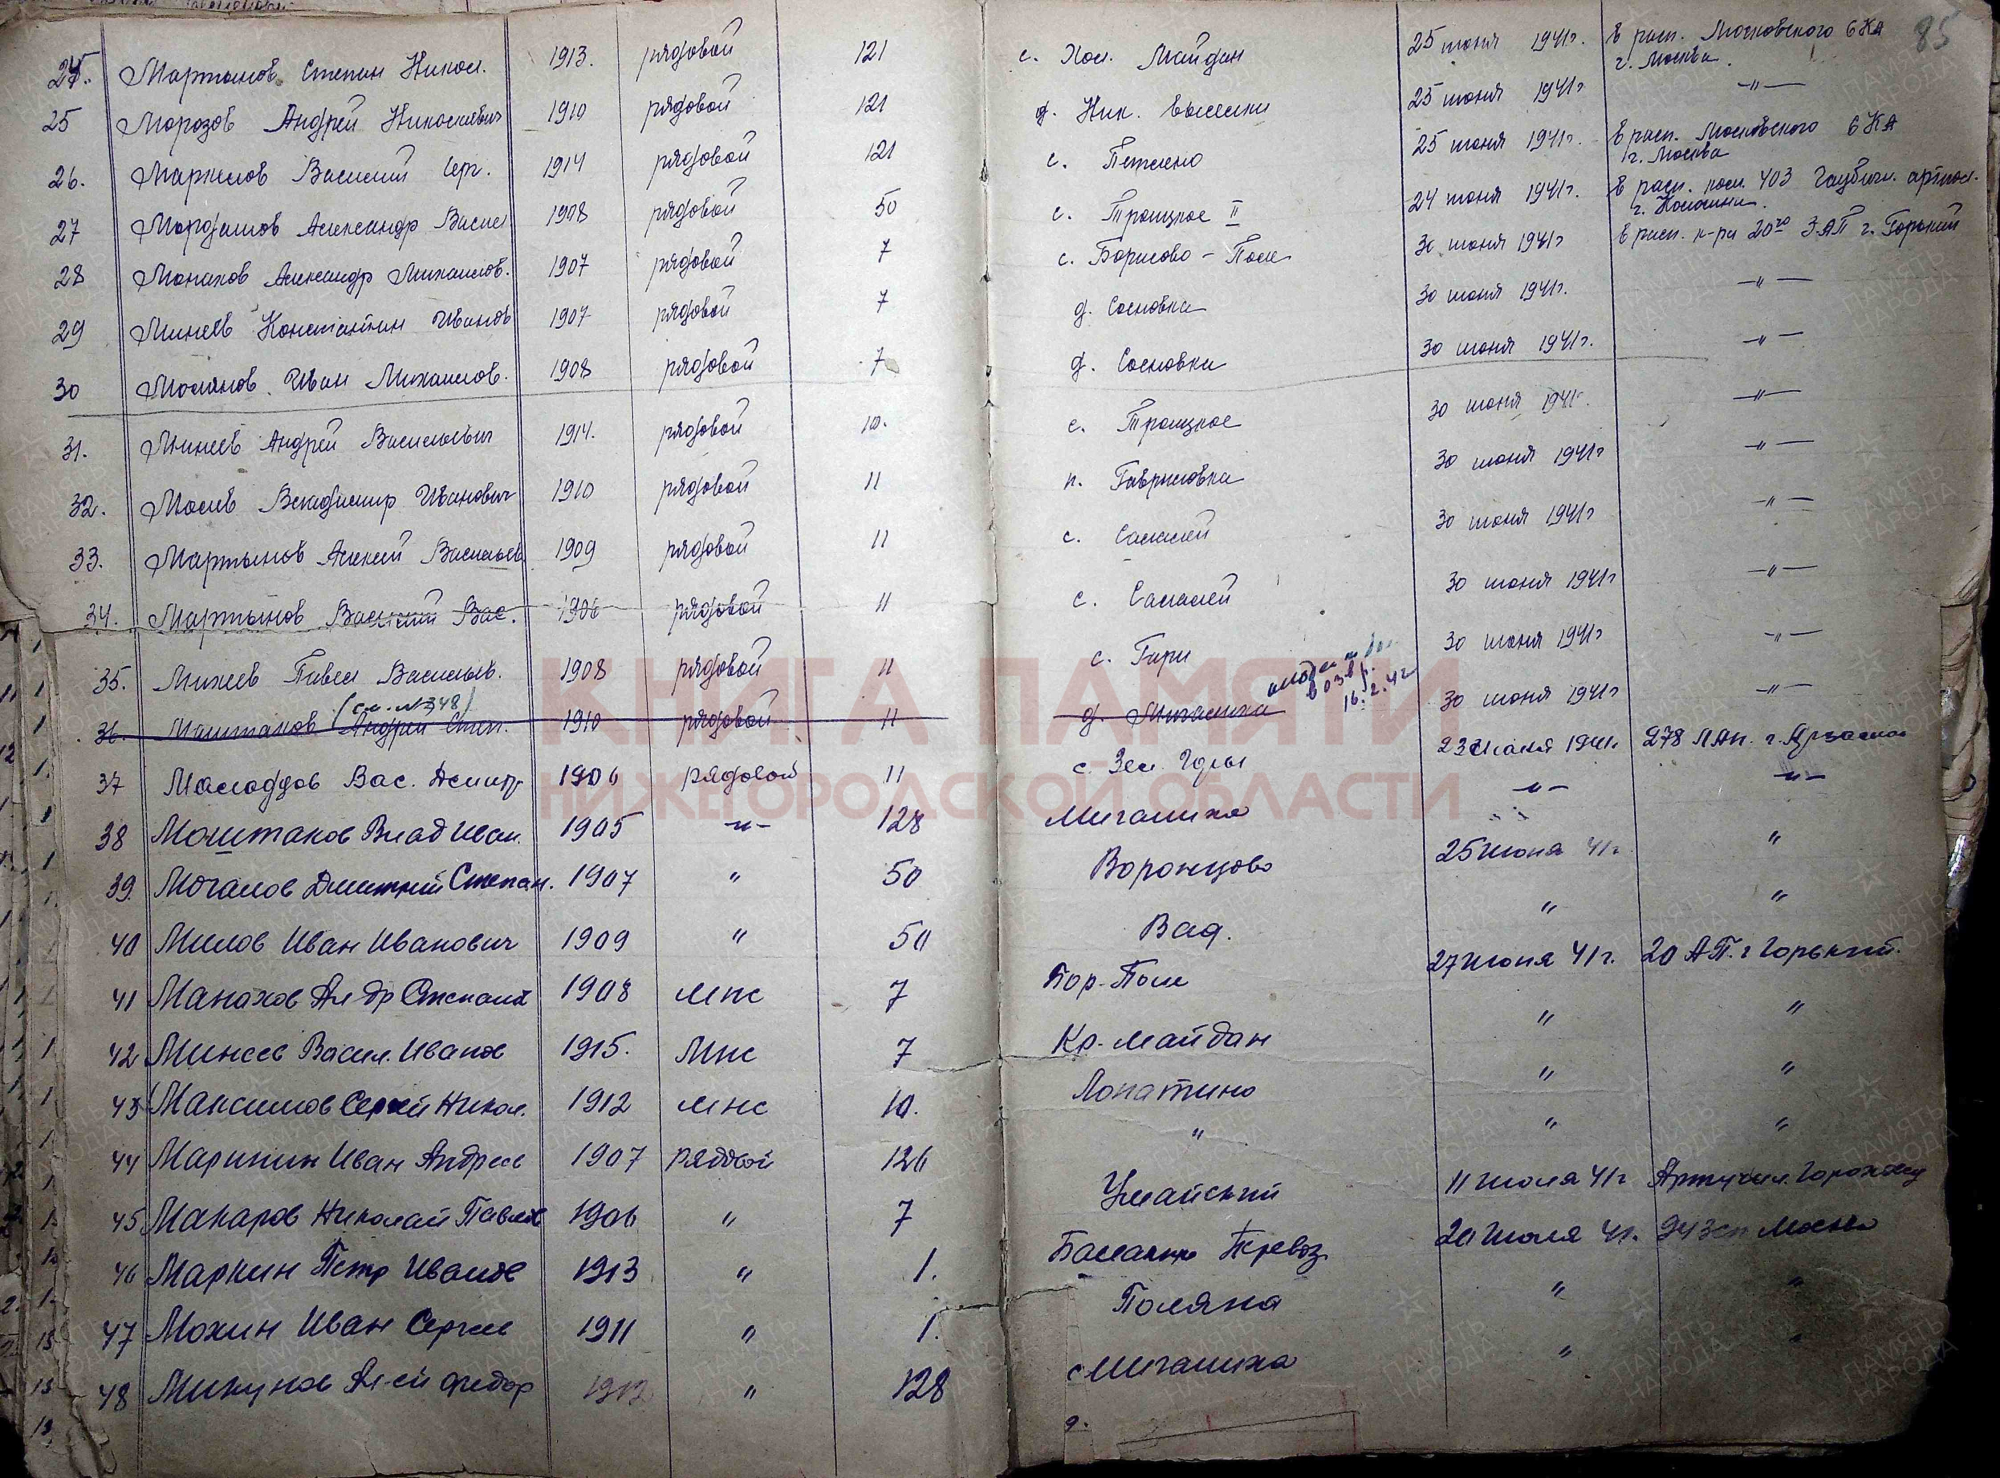 85
24. Мартынов Степан Никол. 1913. рядовой 121 с. Хол. Майдан 25 июня 1941г. в расп. Московского БКА г. Москва.
25 Морозов Андрей Николаевич 1910 рядовой 121 д. Ник. Выселки 25 июня 1941г -"-
26. Маркелов Василий Сер. 1914 рядовой 121 с. 25 июня 1941г. в расп. Московского БКА г. Москва
27 Мордашов Александр Васил 1908 рядовой 50 с. Троицкое II 24 июня 1941г. в расп. 403 Гаубич. артпол. г.
28 Монахов Александр Михайлов. 1907 рядовой 7 с. Борисово-Поле 30 июня 1941г в расп. к-ра 20го ЗАП г. Горький
29 Минеев Константин Иванов 1907 рядовой 7 д. Сосновка 30 июня 1941г. -"-
30 Молянов Иван Михайлов. 1908 рядовой 7 д. Сосновка 30 июня 1941г. -"-
31. Минеев Андрей Васильевич 1914. рядовой 10. с. Троицкое 30 июня 1941г. -"-
32. Мосев Владимир Иванович 1910 рядовой 11 п. Гавриловка 30 июня 1941г -"-
33. Мартынов Алексей Васильев. 1909 рядовой 11 с. Салалей 30 июня 1941г -"-
34. Мартынов Василий Вас. 1906 рядовой 11 с. Салалей 30 июня 1941г -"-
35. Михеев Павел Васильев. 1908 рядовой 11 с. Гари 30 июня 1941г -"-
(см. №348)
36. Маштаков Андрей Степ. 1910 рядовой 11 д. Мигалиха возвр. 16.2.42г 30 июня 1941г -"-
37 Вас. Дмитр 1906 рядовой 11 с. Зел. Горы 23 июня 1941г. 278 ЛАП. г. Арзамас
38 Моштаков Влад Иван. 1905 -"- 128 Мигалиха -"- -"-
39. Мочалов Дмитрий Степан. 1907 " 50 Воронцово 25 июня 41г. "
40 Милов Иван Иванович 1909 " 50 Вад. " "
41 Манахов Ал-др Степан 1908 мпс 7 Бор-Поле 27 июня 41г. 20 АП. г Горький.
42 Минеев Васил. Иванов 1915. мнс 7 Кр. майдан " "
43 Максимов Сергей Никол. 1912 мнс 10. Лопатино " "
44 Маринин Иван Андрее 1907 рядовой 126 " " "
45 Макаров Николай Павлов 1906 " 7 Умайский 11 июля 41г Артучил. Гороховец
46 Маркин Петр Иванов 1913 " 1. Перевоз. 20 июля 41г. Москва
47 Мохин Иван Сергее 1911 " 1. Поляна " "
48 Микунов Ал-ей Федор 1912 " 128 с Мигалиха " "
д.
КНИГА ПАМЯТИ
НИЖЕГОРОДСКОЙ ОБЛАСТИ
ПАМЯТЬ НАРОДА